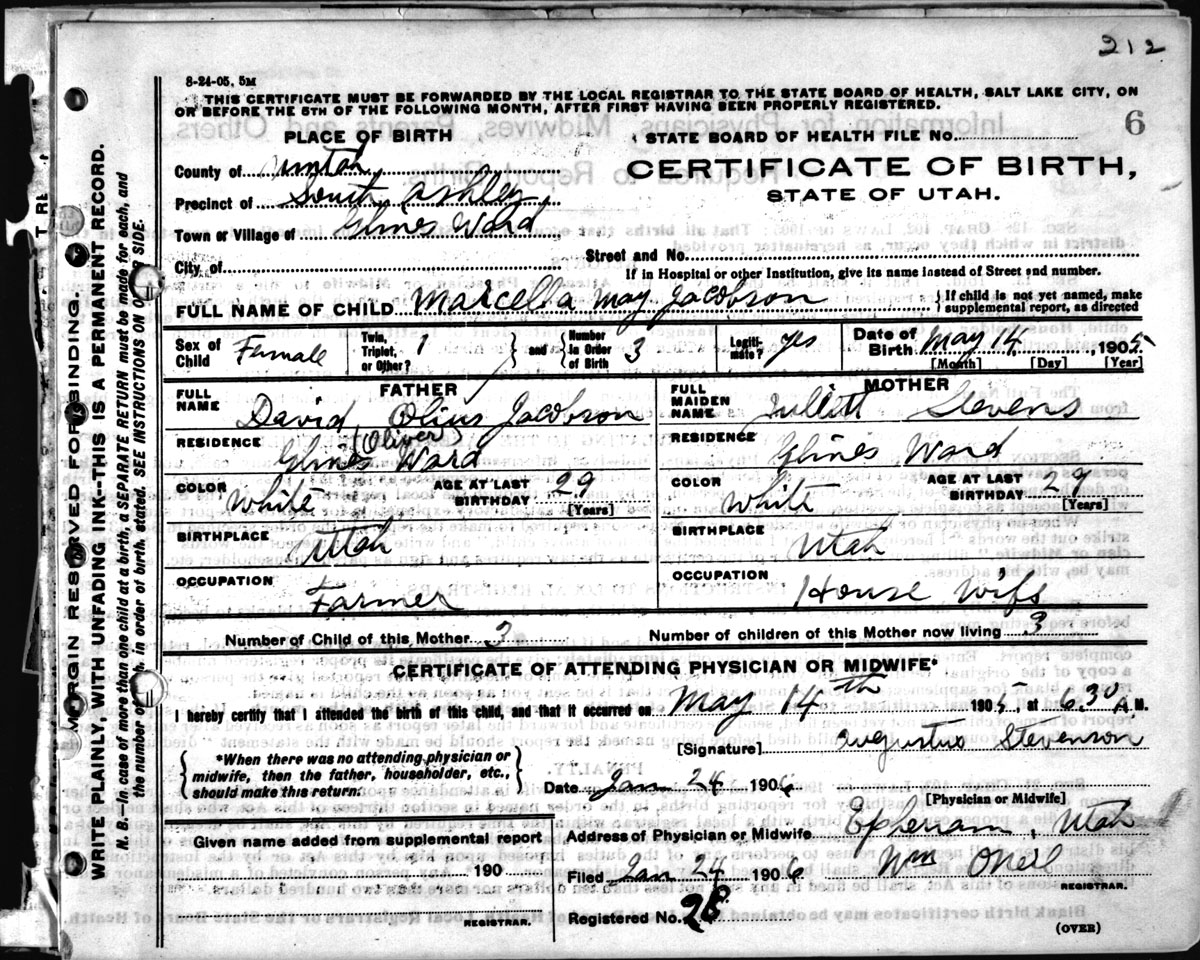 212
8-24-05, 5M
THIS CERTIFICATE MUST BE FORWARDED BY THE LOCAL REGISTRAR TO THE STATE BOARD OF HEALTH, SALT LAKE CITY, ON
OR BEFORE THE 5TH OF THE FOLLOWING MONTH, AFTER FIRST HAVING BEEN PROPERLY REGISTERED.
PLACE OF BIRTH
STATE BOARD OF HEALTH FILE No. 6
County of Uintah
CERTIFICATE OF BIRTH,
STATE OF UTAH.
Precinct of South Ashley
Town or Village of Glines Ward
City of
Street and No.
If in Hospital or other Institution, give its name instead of Street and number.
FULL NAME OF CHILD Marcella May Jacobson { If child is not yet named, make supplemental report, as directed
Sex of Child Famale Twin, Triplet, or Other? 1 } and { Number in Order of Birth 3 Legitimate? yes Date of Birth May 14, 1905
[Month] [Day] [Year]
FATHER
FULL NAME David Olius Jacobson
(Oliver)
RESIDENCE Glines Ward
COLOR White AGE AT LAST BIRTHDAY 29
[Years]
BIRTHPLACE Utah
OCCUPATION Farmer
MOTHER
FULL MAIDEN NAME Jullitt Stevens
RESIDENCE Glines Ward
COLOR White AGE AT LAST BIRTHDAY 29
[Years]
BIRTHPLACE Utah
OCCUPATION House Wife
Number of Child of this Mother 3 Number of children of this Mother now living 3
CERTIFICATE OF ATTENDING PHYSICIAN OR MIDWIFE*
I hereby certify that I attended the birth of this child, and that it occurred on May 14th 1905, at 630 A.M.
[Signature] Augustus Stevenson
{ *When there was no attending physician or
midwife, then the father, householder, etc.,
should make this return. }
Date Jan 24 1906
[Physician or Midwife]
Given name added from supplemental report
190
REGISTRAR.
Address of Physician or Midwife Epheriam, Utah
Filed Jan 24 1906 Wm ONeil
REGISTRAR.
Registered No. 28
(OVER)
MARGIN RESERVED FOR BINDING.
WRITE PLAINLY, WITH UNFADING INK--THIS IS A PERMANENT RECORD.
N. B.—In case of more than one child at a birth, a SEPARATE RETURN must be made for each, and
the number of each, in order of birth, stated. SEE INSTRUCTIONS ON SIDE.